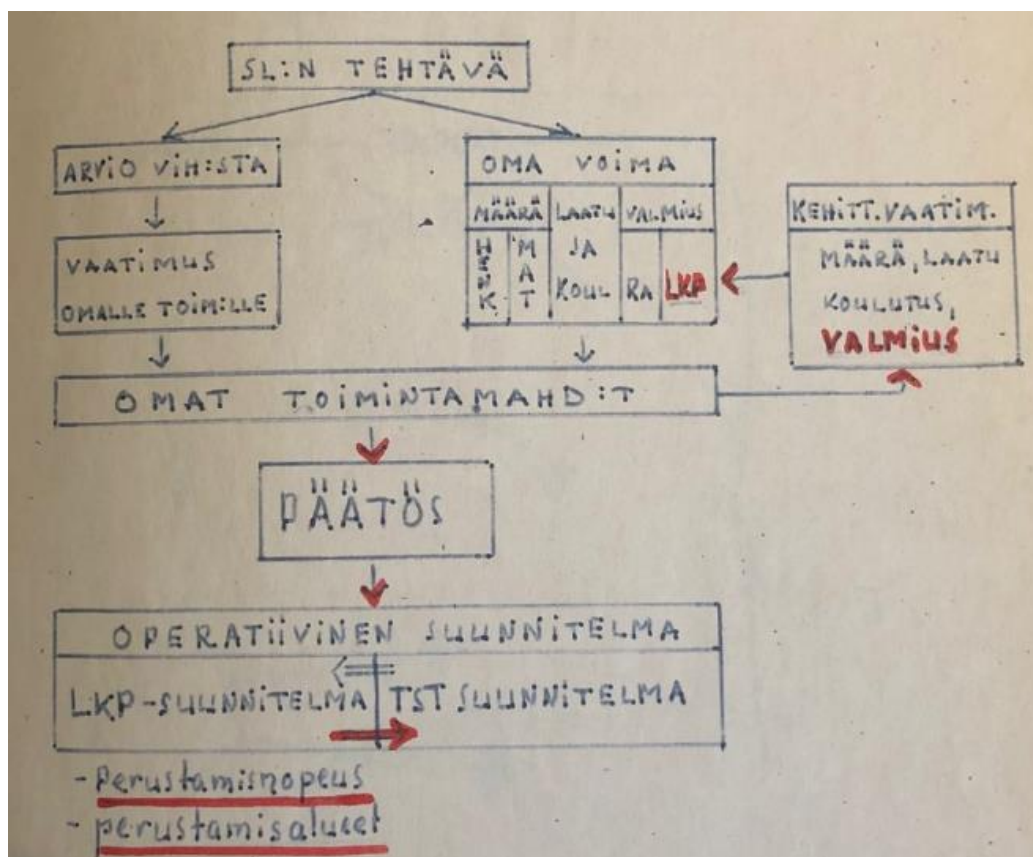 SL:N TEHTÄVÄ
ARVIO VIH:STA
VAATIMUS
OMALLE TOIM:LLE
OMA VOIMA
MÄÄRÄ LAATU VALMIUS
HENK MAT JA KOUL RA LKP
KEHITT.VAATIM.
MÄÄRÄ, LAATU
KOULUTUS,
VALMIUS
OMAT TOIMINTAMAHD:T
PÄÄTÖS
OPERATIIVINEN SUUNNITELMA
LKP-SUUNNITELMA TST SUUNNITELMA
- Perustamisnopeus
- perustamisalueet